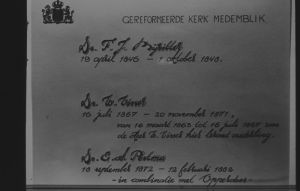 GEREFORMEERDE KERK MEDEMBLIK
Ds. F. J.
19 april 1845 - 1 oktober 1848.
Ds. W. Visser
16 juli 1867 - 20 november 1871,
van 16 maart 1865 tot 16 juli 1867 was
de Visser hier lerend
Ds. G.
18 september 1872 - 12 februari 1888
- in combinatie met Opperdoes